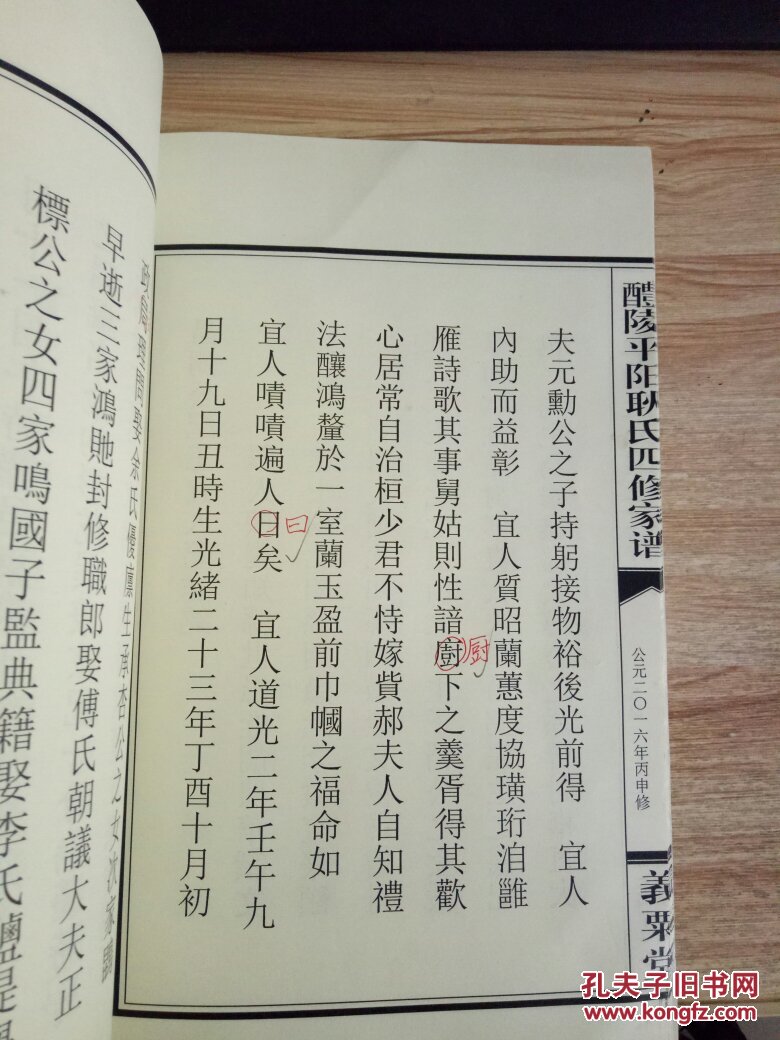 醴陵平阳耿氏四修家谱
公元二〇一六年丙申修
義粟堂
夫元勳公之子持躬接物裕後光前得 宜人
內助而益彰 宜人質昭蘭蕙度協璜珩洎雝
雁詩歌其事舅姑則性諳廚下之羹胥得其歡
厨
心居常自治桓少君不恃嫁貲郝夫人自知禮
法釀鴻釐於一室蘭玉盈前巾幗之福命如
宜人嘖嘖遍人日矣 宜人道光二年壬午九
曰
月十九日丑時生光緒二十三年丁酉十月初
娶余氏優廪生承杏公之女次家
早逝三家鴻貤封修職郎娶傅氏朝議大夫正
標公之女四家鳴國子監典籍娶李氏鹽提
孔夫子旧书网
KONGFZ.COM